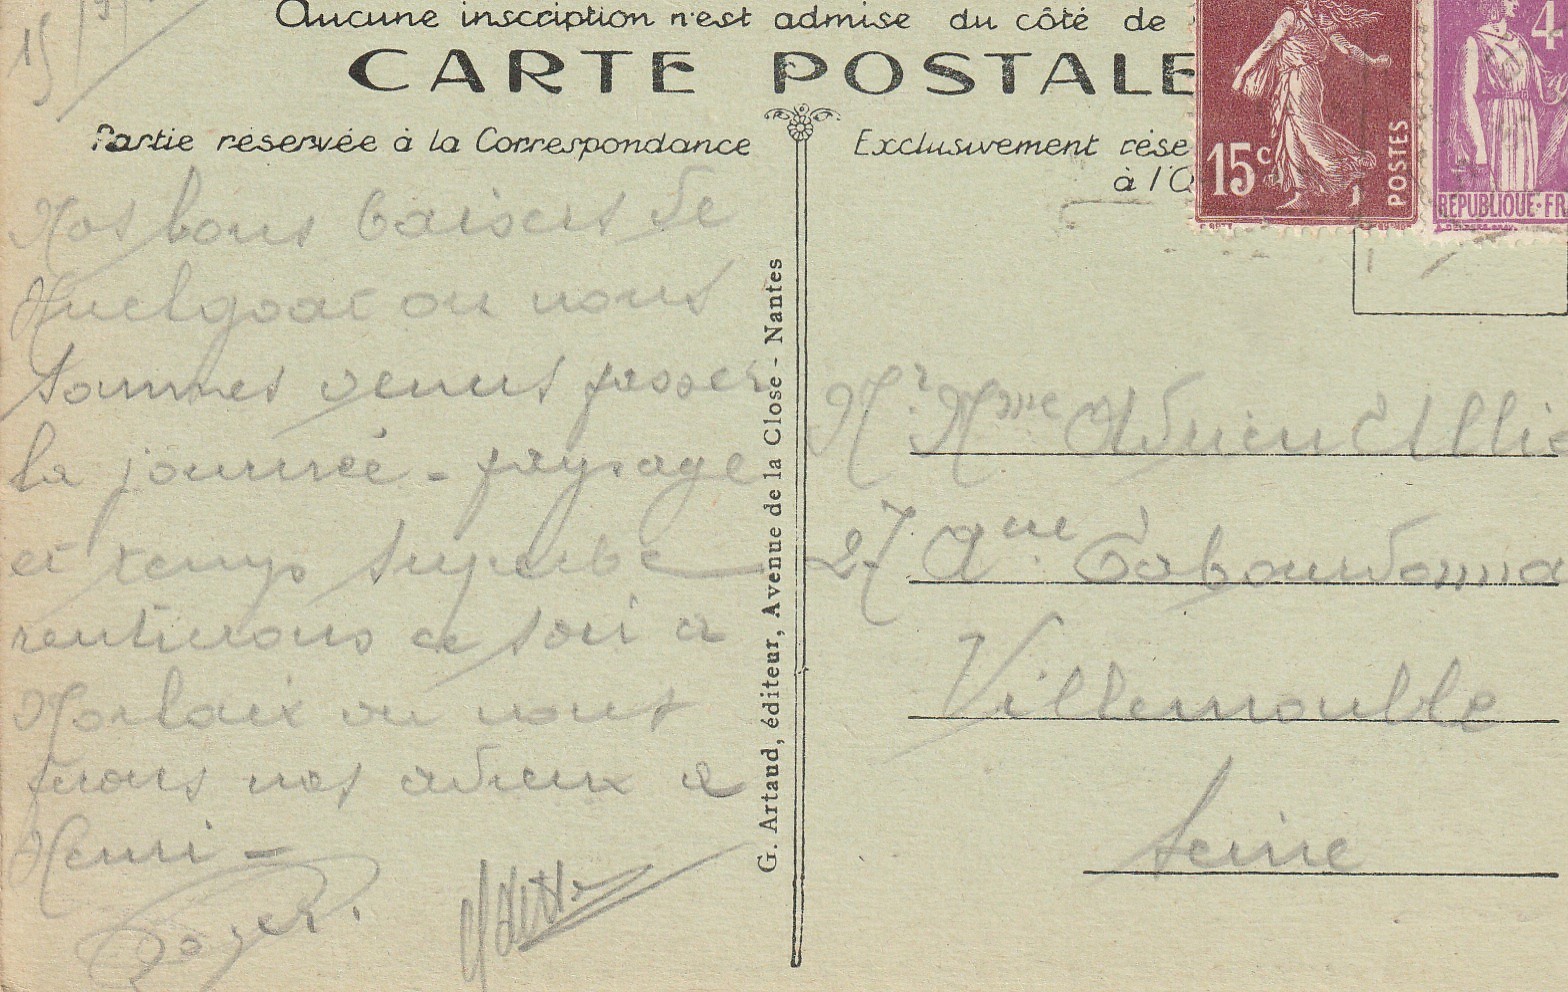 Aucune inscription n'est admise du côté de
CARTE POSTALE
Partie réservée à la Correspondance
Exclusivement rése
à l'
15c
POSTES
4
REPUBLIQUE·FR
15
Nos bons baisers de
Huelgoat ou nous
sommes venus passer
la journée - paysage
et temps superbe
rentrerons ce soir a
Morlaix ou nous
ferons nos adieux a
Henri -
Roger.
G. Artaud, éditeur, Avenue de la Close - Nantes
Mr. Mme Adrien Allie
27 Aue Labourdonna
Villemomble
Seine